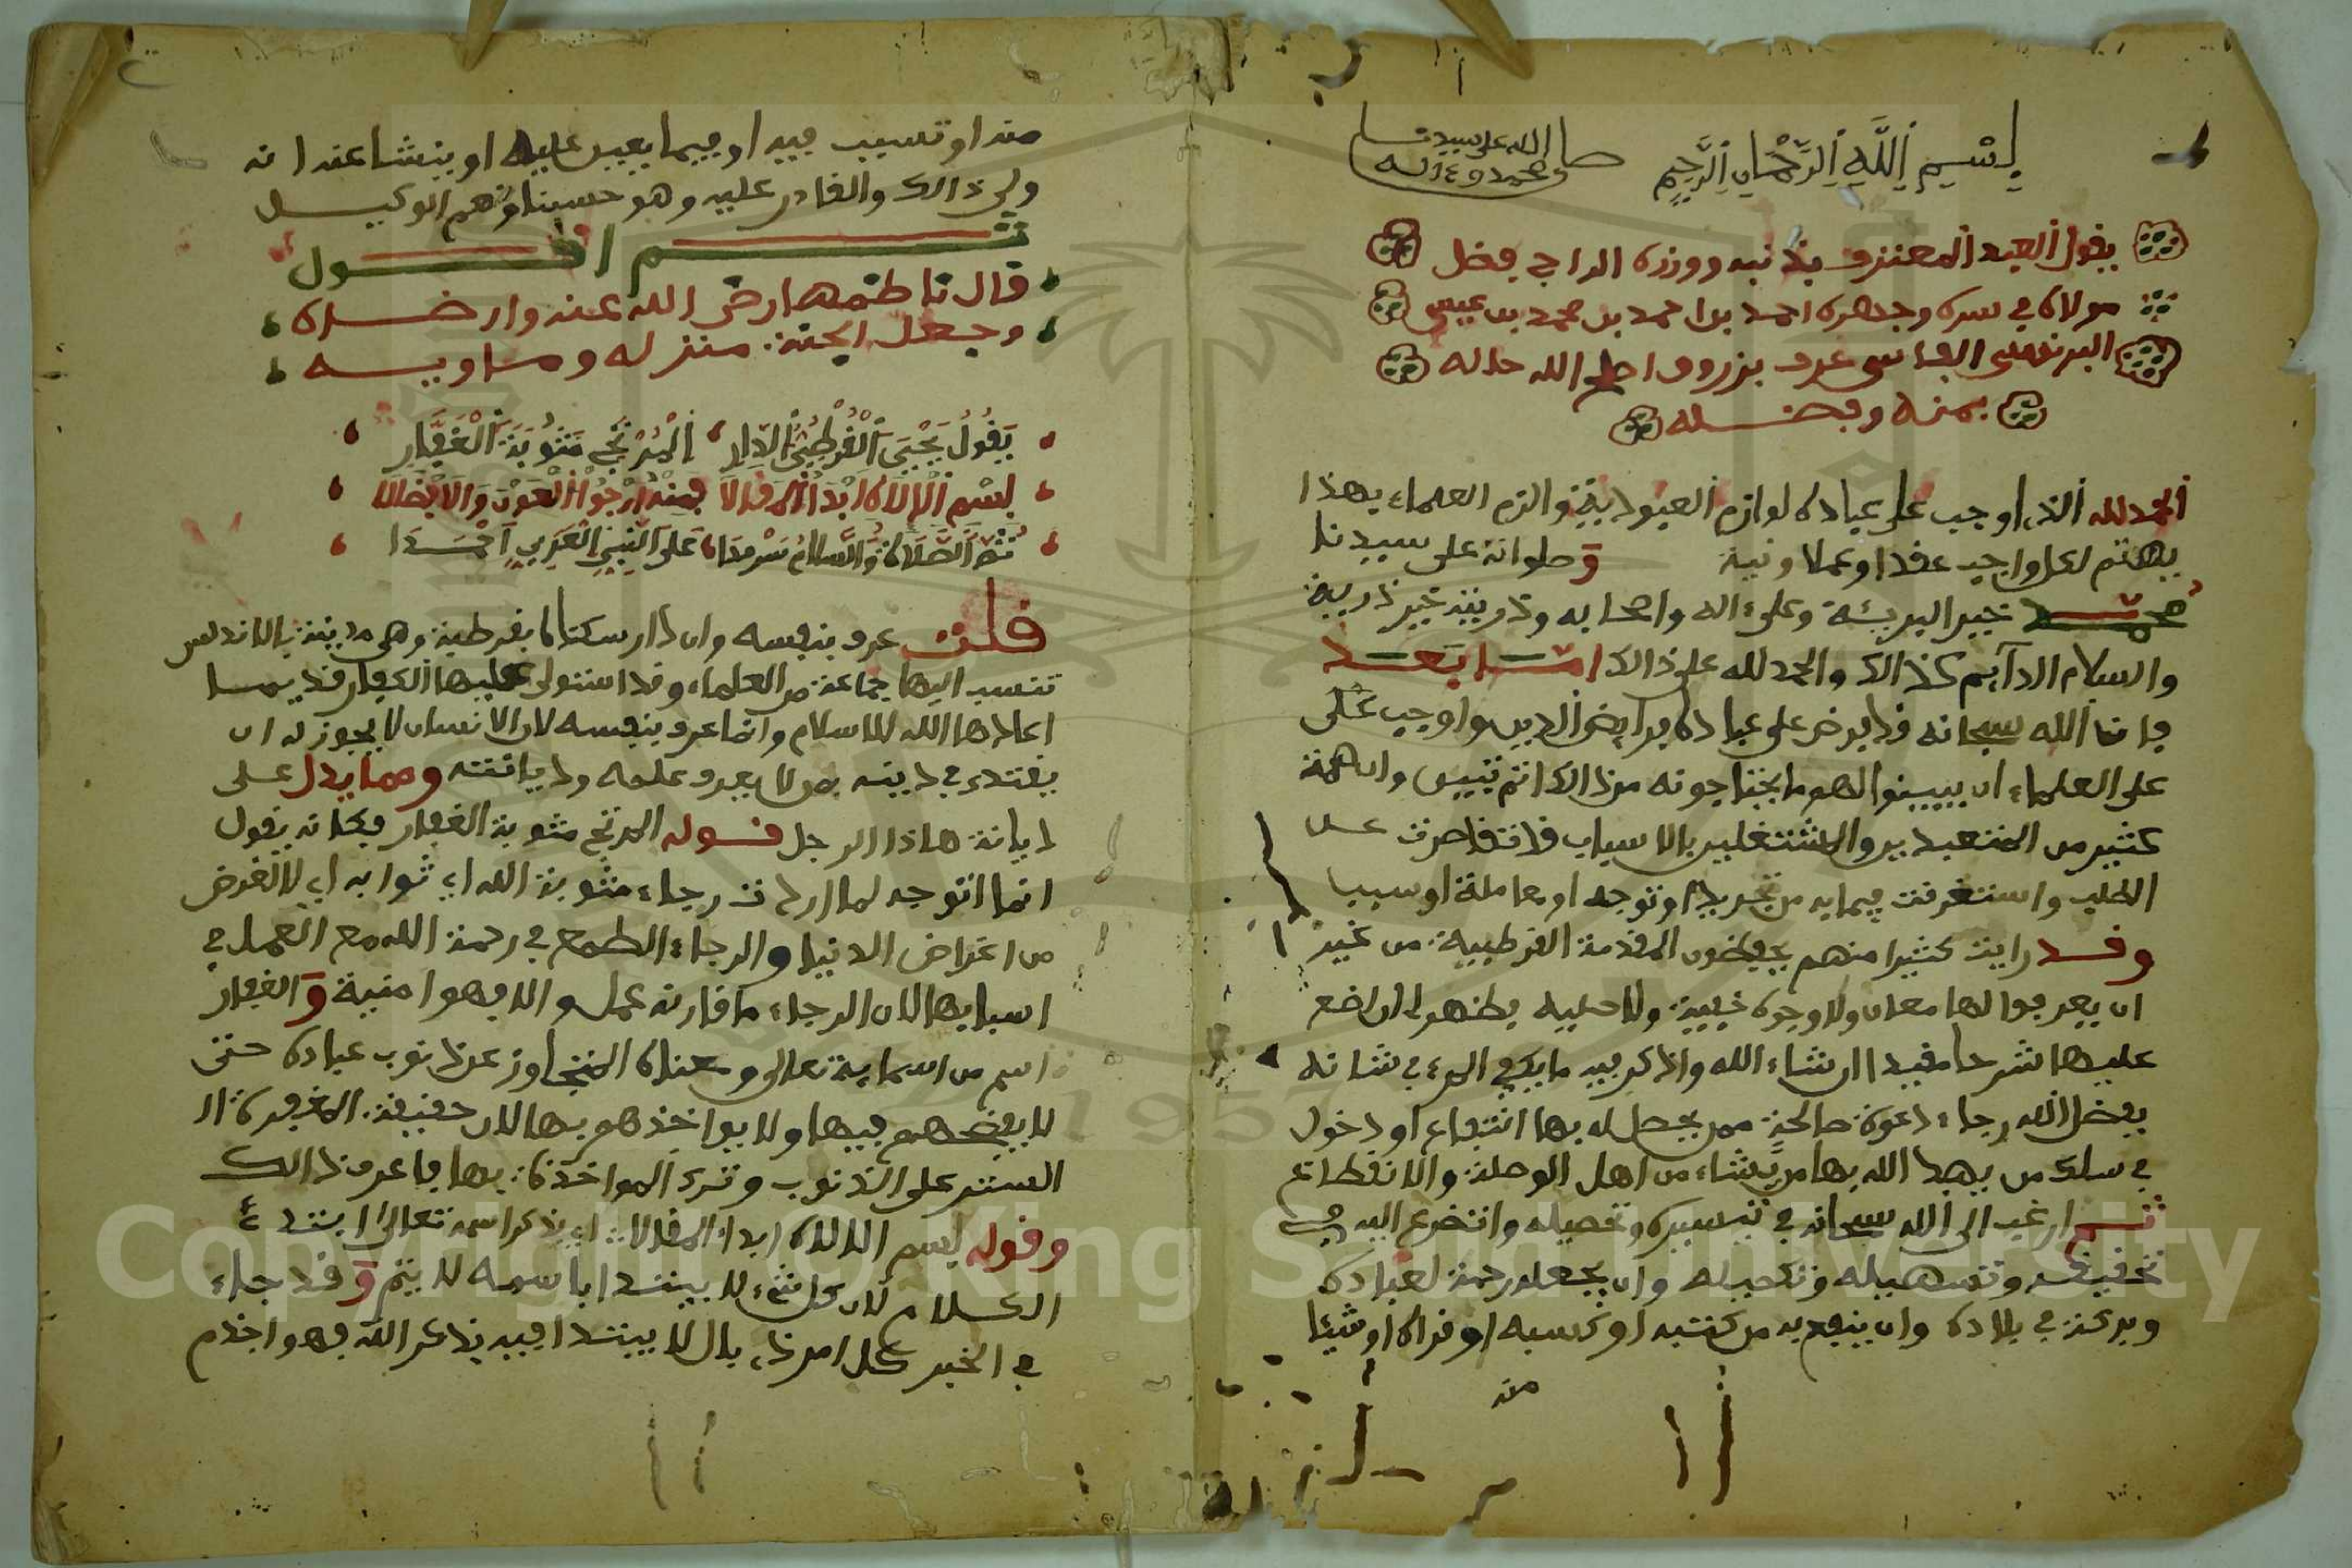 بسم الله الرحمان الرحيم صلى الله على سيدنا
محمد وءاله
يقول العبد المعترف بذنبه ووزره الراجي فضل
مولاه في سره وجهره احمد بن احمد بن محمد بن عيسى
البرنسي الفاسي عرف بزروق اصلح الله حاله
بمنه وفضله
الحمد لله الذي اوجب على عباده لوازم العبودية والزم العلماء بهذا
يهتم لكل واجب عقدا وعملا ونية وصلواته على سيدنا
محمد خير البرية وعلى ءاله واصحابه وذريته خير ذرية
والسلام الدايم كذالك والحمد لله على ذالك اما بعد
فان الله سبحانه قد فرض على عباده فرايض الدين واوجب على
على العلماء ان يبينوا لهم ما يحتاجونه من ذالك اتم تبيين وان همة
كثير من المتعبدين والمشتغلين بالاسباب قد تقاصرت عن
الطلب واستغرقت فيما به من تجريد او توجه او معاملة او سببا
وقد رايت كثيرا منهم يحفظون المقدمة القرطبية من غير
ان يعرفوا لها معان ولا وجوه خفية ولا جلية فظهر لي ان اضع
عليها شرحا مفيدا ان شاء الله واذكر فيه ما يكفي المرء في شانه
بفضل الله رجاء دعوة صالحة ممن يحصل له بها انتفاع او دخول
في سلك من يهد الله بها من يشاء من اهل الوصلة والانقطاع
ثم ارغب الى الله سبحانه في تيسيره وتحصيله واتضرع اليه في
تخفيفه وتسهيله وتكميله وان يجعله رحمة لعباده
وبركة في بلاده وان ينفع به من كتبه او كسبه او قراه او شيئا
منه
منه او تسبب فيه او فيما يعين عليه او ينشا عنه انه
ولي ذالك والقادر عليه وهو حسبنا ونعم الوكيل
ثم اقول
قال ناظمها رضي الله عنه وارضاه
وجعل الجنة منزله وماويه
يقول يحيى القرطبي الدار المرتجي مثوبة الغفار
بسم الالاه ابدا المقالا فمنه ارجو العون والافضالا
ثم الصلاة والسلام سرمدا على النبي العربي احمدا
قلت عرف بنفسه وان دار سكناه بقرطبة وهي مدينة بالاندلس
تنسب اليها جماعة من العلماء وقد استولى عليها الكفار قديما
اعادها الله للاسلام وانما عرف بنفسه لان الانسان لا يجوز له ان
يقتدي في دينه بمن لا يعرف علمه وديانته ومما يدل على
ديانة هاذا الرجل قوله المرتجي مثوبة الغفار فكانه يقول
انما اتوجه لما اردت رجاء مثوبة الله اي ثوابه اي لا لغرض
من اغراض الدنيا والرجاء الطمع في رحمة الله مع العمل في
اسبابها لان الرجاء ما قارنه عمل والا فهو امنية والغفار
اسم من اسمايه تعالى ومعناه المتجاوز عن ذنوب عباده حتى
لا يفضحهم فيها ولا يواخذهم بها لان حقيقة المغفرة ال
الستر على الذنوب وترك المواخذة بها فاعرف ذالك
وقوله بسم الالاه ابدا المقالا اي بذكر اسمه تعالى ابتدء
الكلام لان كل شيء لا يبتدا باسمه لا يتم وقد جاء
في الخبر كل امر ذي بال لا يبتدا فيه بذكر الله فهو اجذم
Copyright © King Saud University
1957